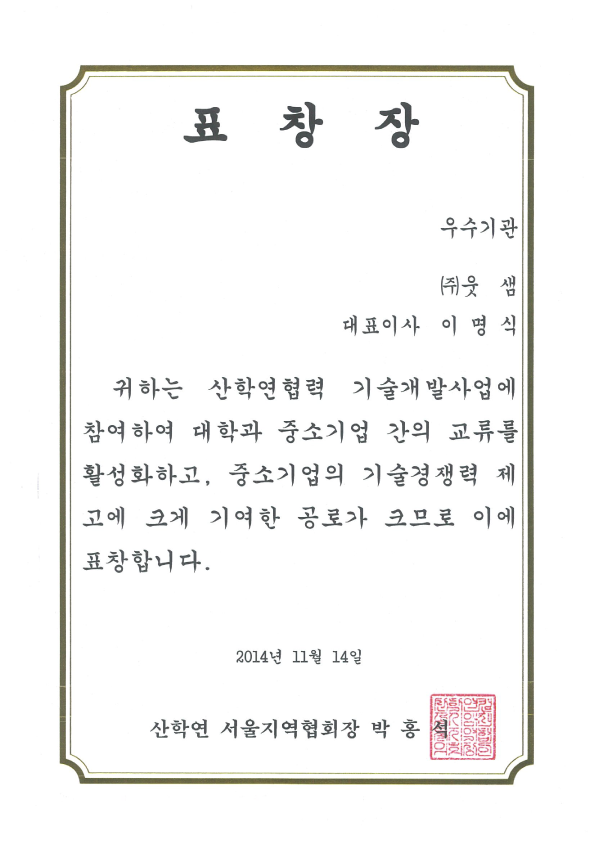 표 창 장
우수기관
㈜웃 샘
대표이사 이 명 식
귀하는 산학연협력 기술개발사업에
참여하여 대학과 중소기업 간의 교류를
활성화하고, 중소기업의 기술경쟁력 제
고에 크게 기여한 공로가 크므로 이에
표창합니다.
2014년 11월 14일
산학연 서울지역협회장 박 홍 석